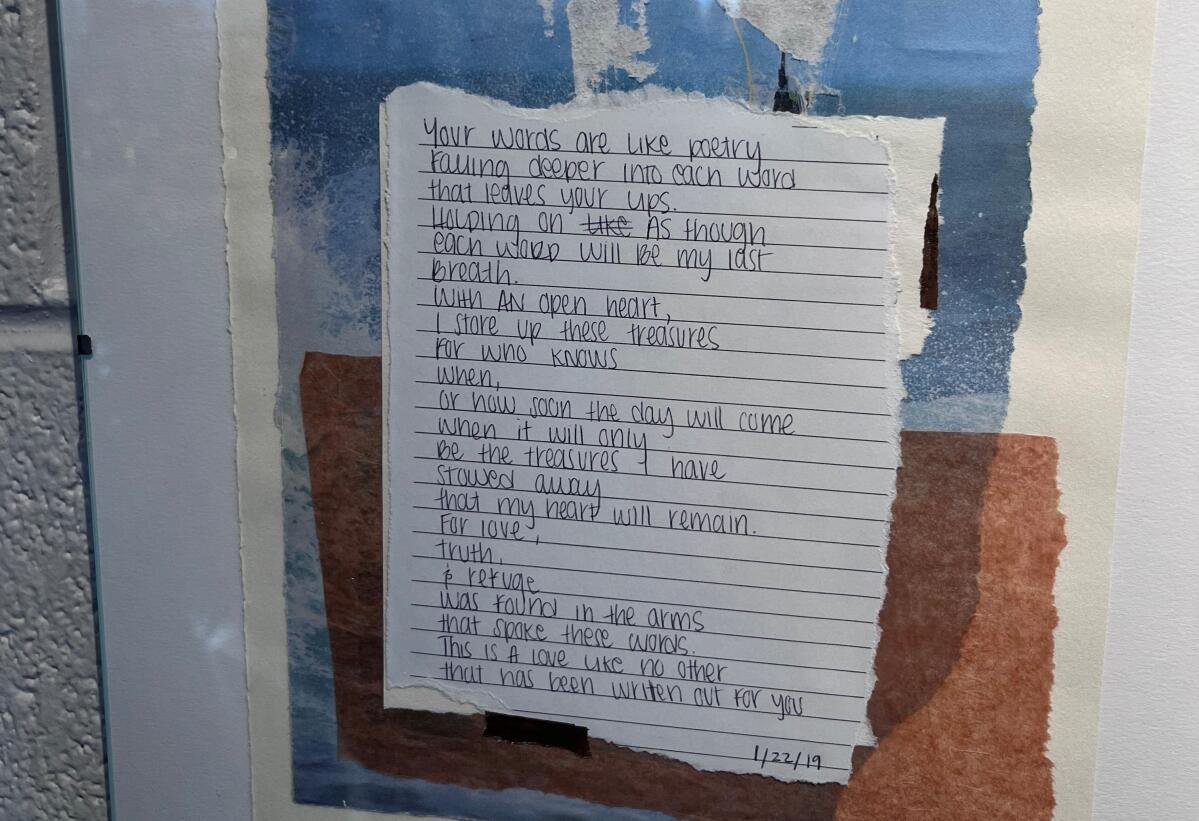 Your words are like poetry
Falling deeper into each word
that leaves your lips.
Holding on like As though
each word will Be my last
Breath.
With AN open heart,
I store up these treasures
For who knows
when,
or how soon the day will come
when it will only
Be the treasures I have
stowed away
that my heart will remain.
For love,
truth,
& refuge
was found in the arms
that spoke these words.
This is A love like no other
that has been written out for you
1/22/19